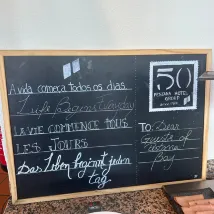 A vida começa todos os dias.
Life Begins Everyday
LA VIE COMMENCE TOUS
LES JOURS
Das Leben beginnt jeden
tag
50
PESTANA HOTEL
GROUP
TO: Dear
Guests of
Bay